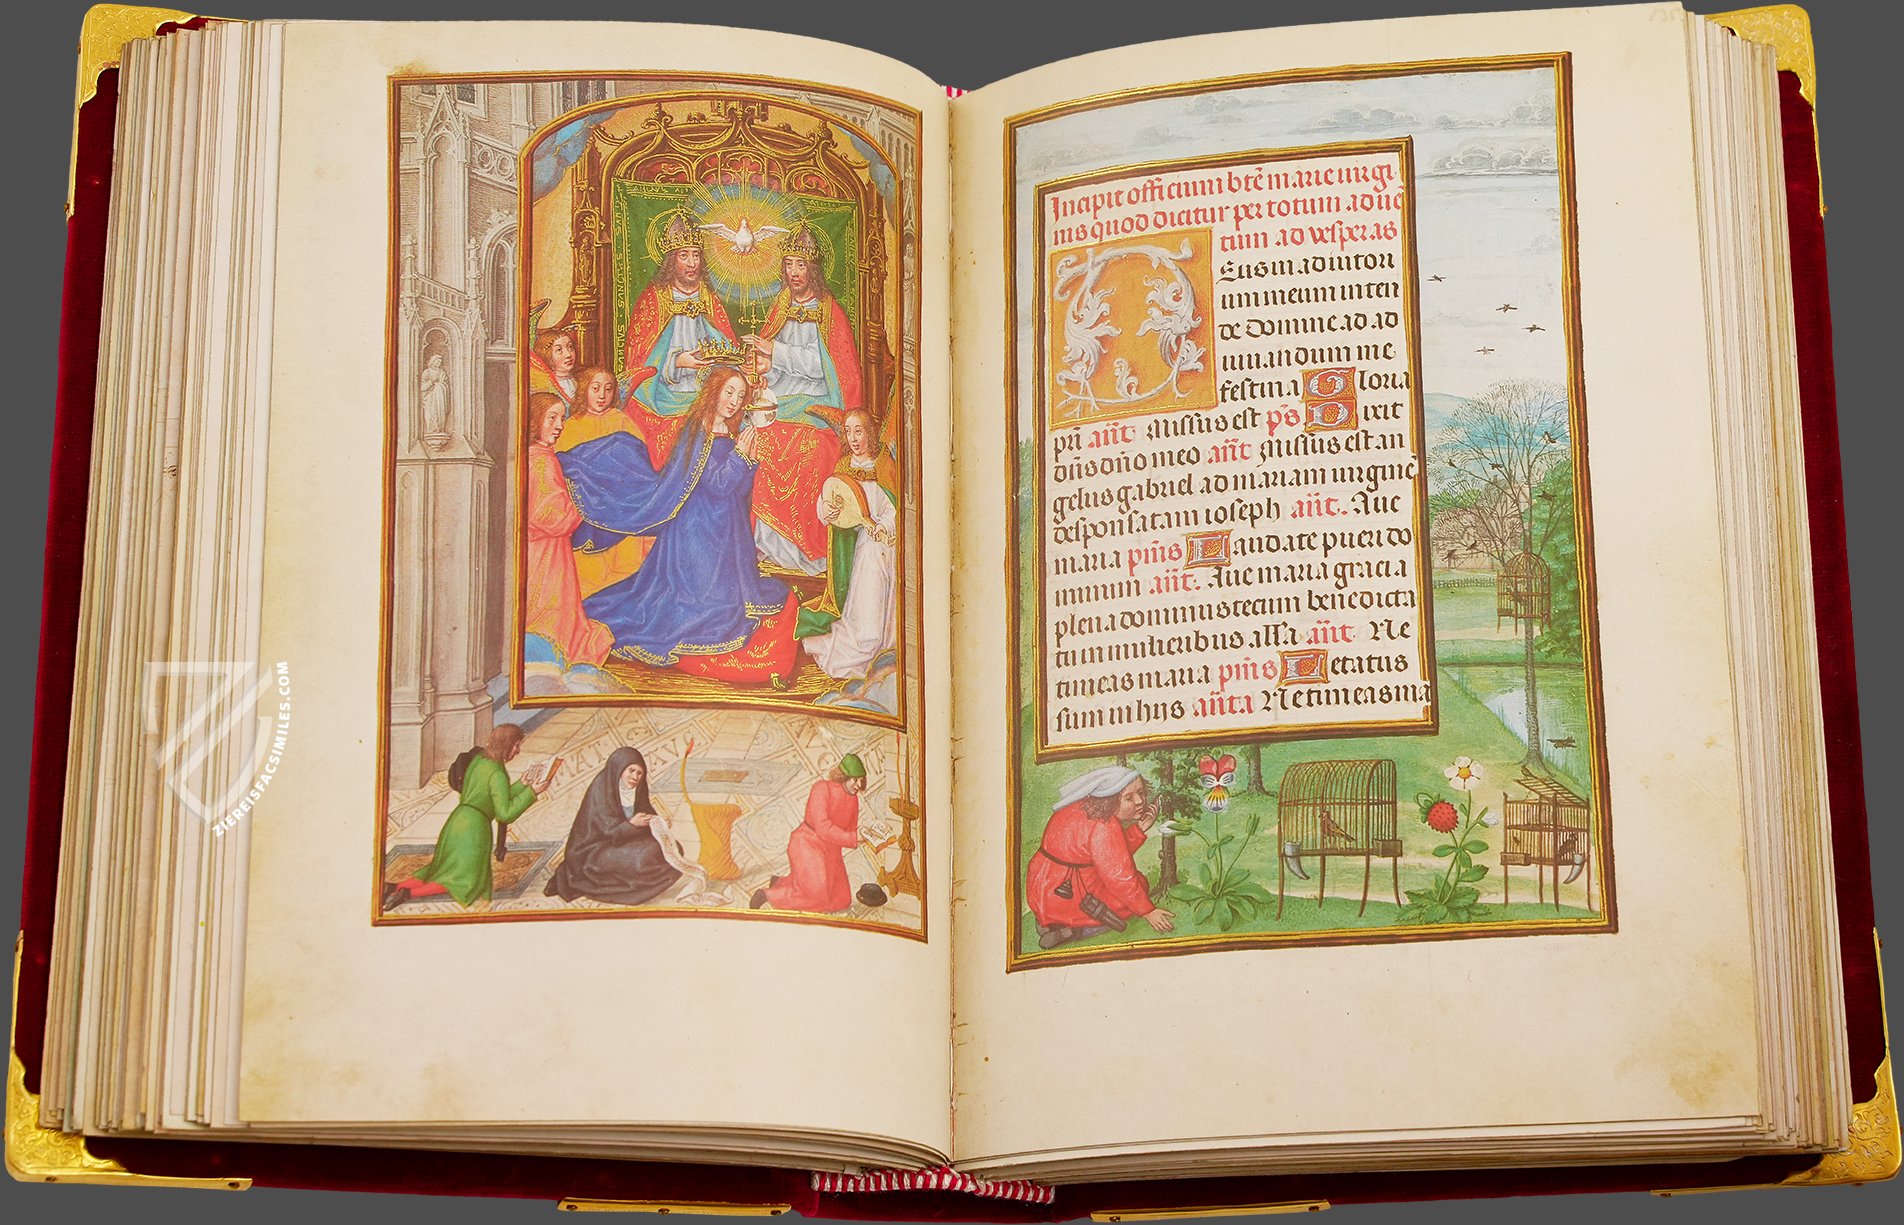 SANCTUS · SANCTUS
MAT
ZIEREISFACSIMILES.COM
Incipit officium bte marie uirgi
nis quod dicitur per totum aduē
tum ad vesperas
Eus in adiutori
um meum inten
de Domine ad ad
iuuandum me
festina Gloria
pri añt Missus est ps Dixit
dñs dño meo añt Missus est an
gelus gabriel ad mariam uirginē
desponsatam ioseph añt. Aue
maria pmis Laudate pueri do
minum añt. Aue maria gracia
plena dominus tecum benedicta
tu in mulieribus alla añt Ne
timeas maria pmis Letatus
sum in hijs añta Ne timeas ma